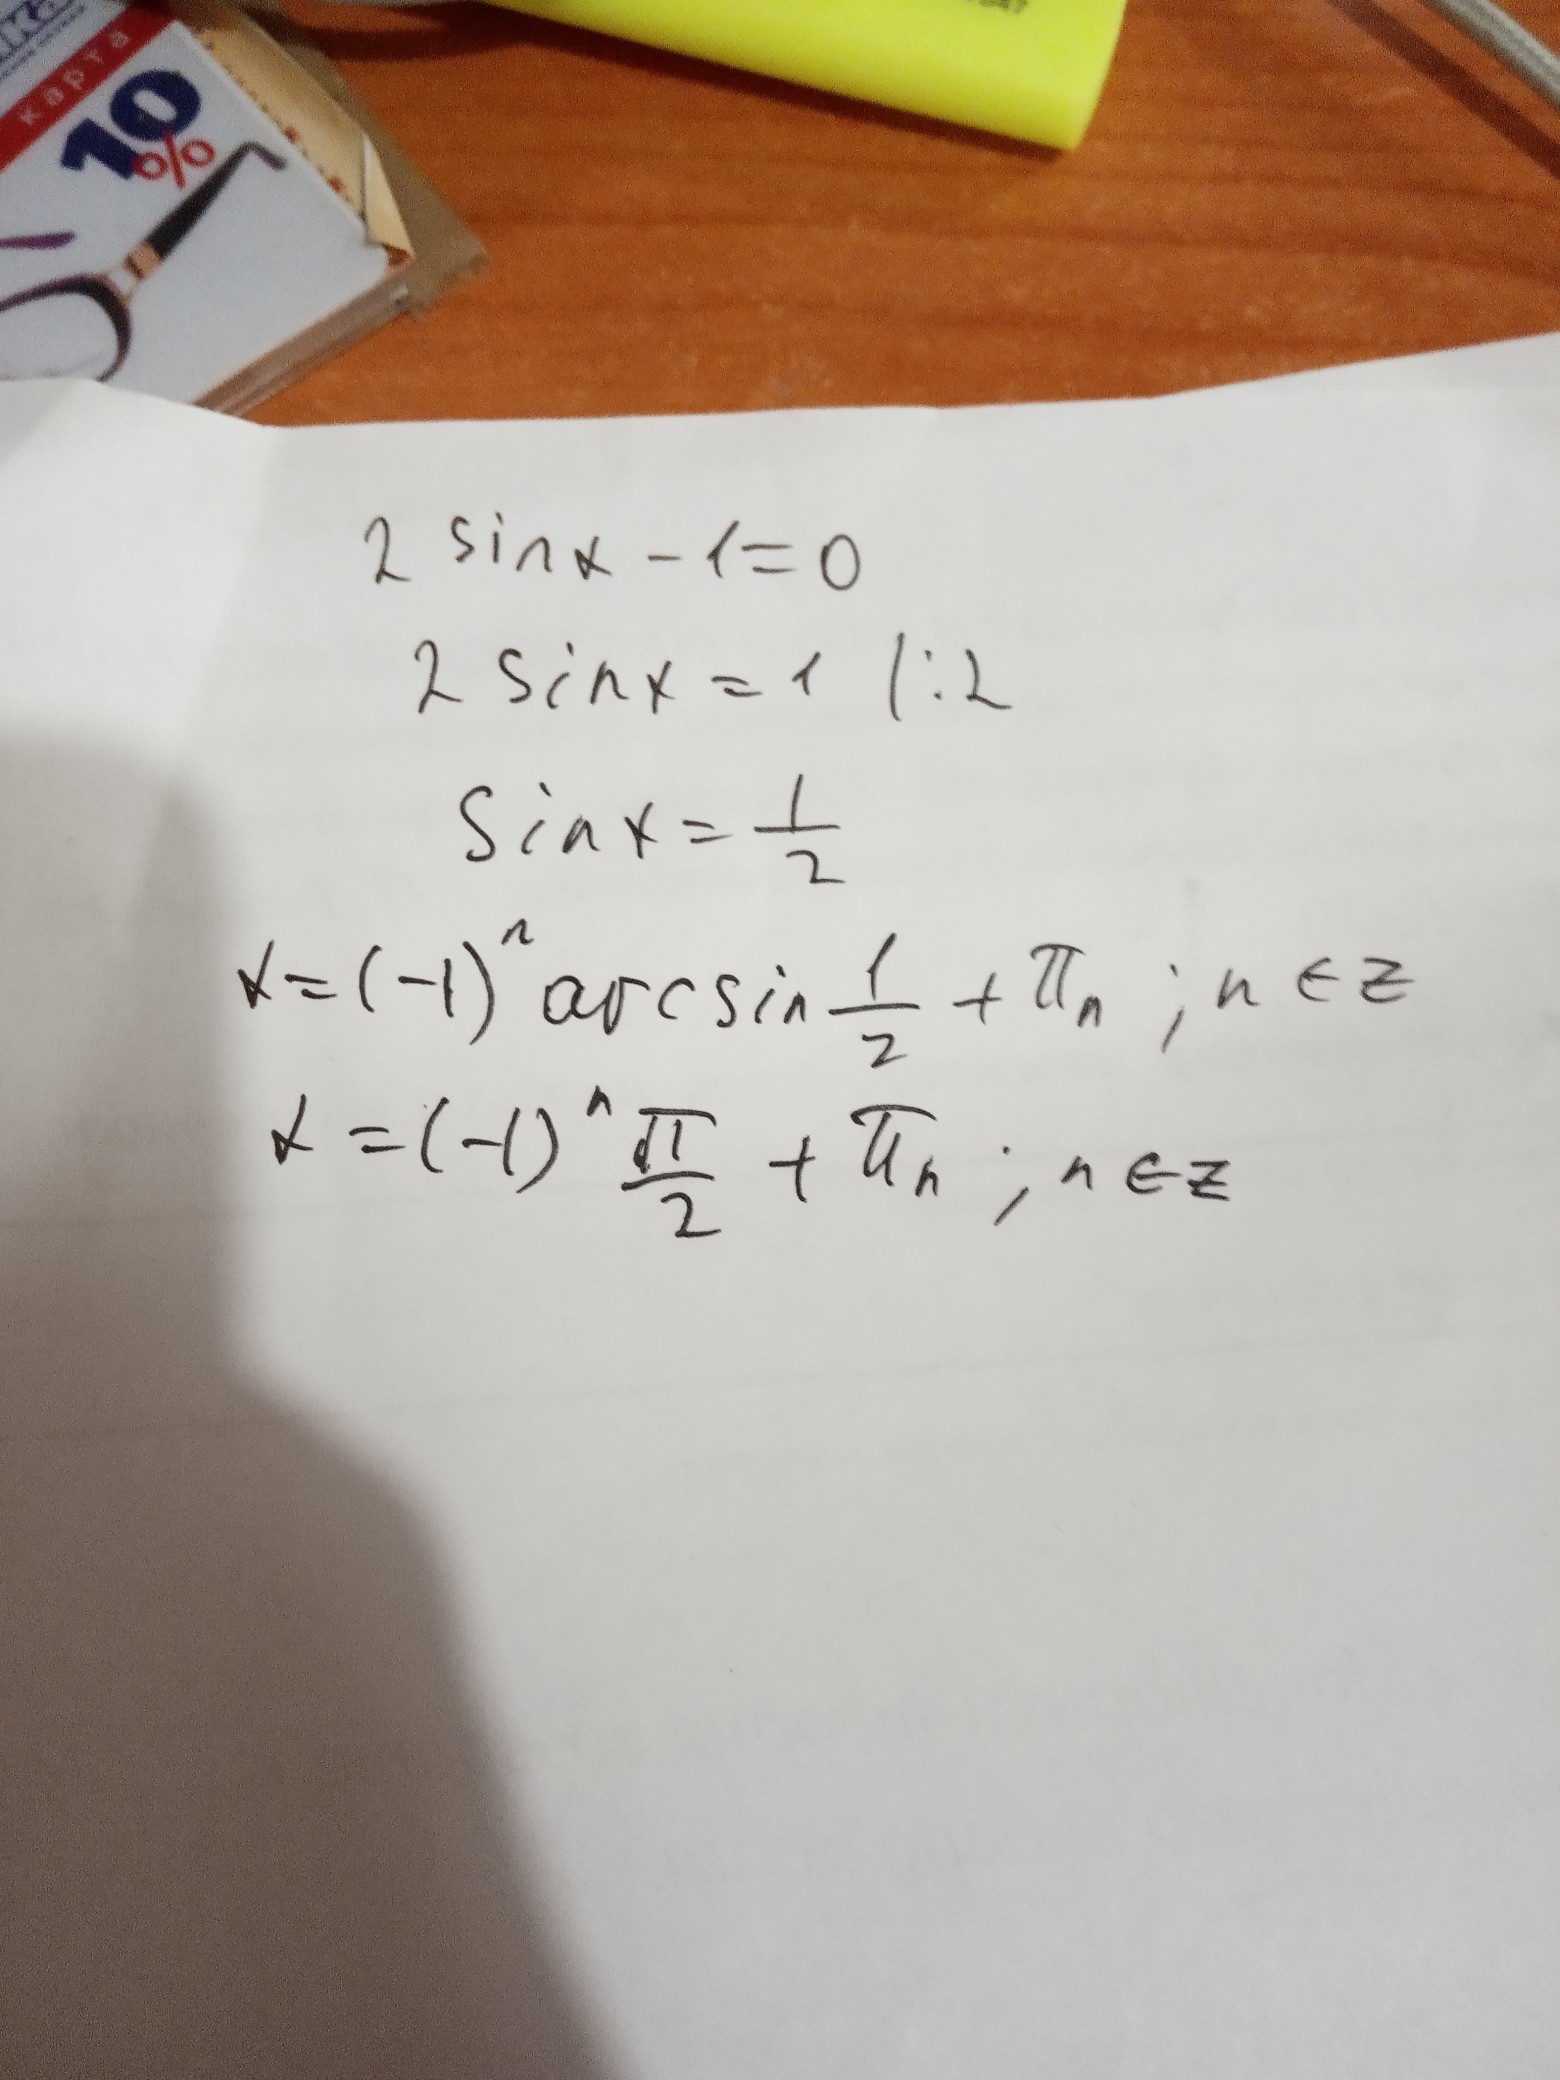 карта
10%
2 sinx - 1 = 0
2 sinx = 1 |:2
sinx = 1/2
x = (-1)ⁿ arcsin 1/2 + πn ; n ∈ z
x = (-1)ⁿ π/2 + πn ; n ∈ z